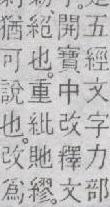 五經文字力部
開寶中改釋文
絕也。重紕貤繆
猶可說也。改為